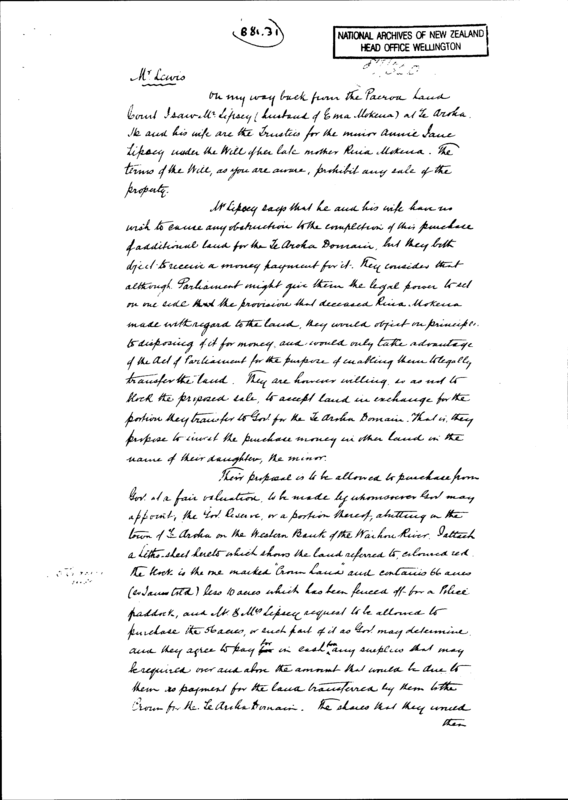 B 86.31
NATIONAL ARCHIVES OF NEW ZEALAND
HEAD OFFICE WELLINGTON
Mr Lewis
On my way back from the Paeroa Land
Court I saw Mr Lipsey (husband of Ema Mokena) at Te Aroha.
He and his wife are the Trustees for the minor Annie Jane
Lipsey under the Will of her late mother Rina Mokena. The
terms of the Will, as you are aware, prohibit any sale of the
property.
Mr Lipsey says that he and his wife have no
wish to cause any obstruction to the completion of this purchase
of additional land for the Te Aroha Domain, but they both
object to receive a money payment for it. They consider that
although Parliament might give them the legal power to set
on one side the provision that deceased Rina Mokena
made with regard to the land, they would object on principle
to disposing of it for money, and would only take advantage
of the Act of Parliament for the purpose of enabling them to legally
transfer the land. They are however willing, so as not to
block the proposed sale, to accept land in exchange for the
portion they transfer to Govt for the Te Aroha Domain. That is, they
propose to invest the purchase money in other land in the
name of their daughter, the minor.
Their proposal is to be allowed to purchase from
Govt at a fair valuation, to be made by whomsoever Govt may
appoint, the Govt Reserve, or a portion thereof, abutting on the
town of Te Aroha on the Western Bank of the Waihou River. I attach
a Litho-sheet hereto which shows the land referred to, coloured red.
The block is the one marked "Crown Land" and contains 66 acres
(so I am told) less 10 acres which has been fenced off for a Police
paddock, and Mr & Mrs Lipsey request to be allowed to
purchase the 56 acres, or such part of it as Govt may determine
and they agree to pay in cash for any surplus that may
be required over and above the amount that would be due to
them as payment for the land transferred by them to the
Crown for the Te Aroha Domain. The shares that they would
then